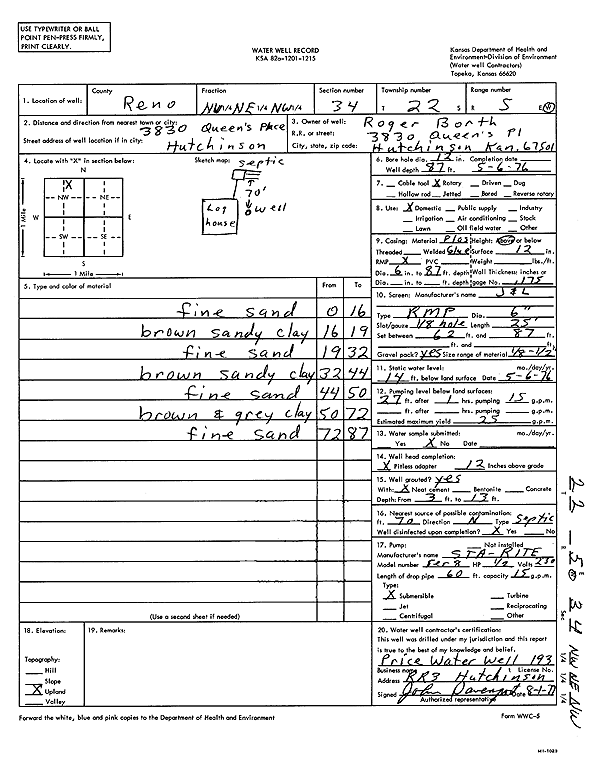 USE TYPEWRITER OR BALL
POINT PEN-PRESS FIRMLY,
PRINT CLEARLY.
WATER WELL RECORD
KSA 82a-1201-1215
Kansas Department of Health and
Environment-Division of Environment
(Water well Contractors)
Topeka, Kansas 66620
1. Location of well:
County
Reno
Fraction
NW 1/4 NE 1/4 NW 1/4
Section number
34
Township number
T 22 S
Range number
R 5 E W
2. Distance and direction from nearest town or city:
3830 Queen's Place
Street address of well location if in city:
Hutchinson
3. Owner of well: Roger Borth
R.R. or street: 3830 Queen's Pl
City, state, zip code: Hutchinson Kan. 67501
4. Locate with "X" in section below:
N
X
NW NE
W E
SW SE
S
1 Mile
1 Mile
Sketch map:
septic
70'
well
Log
house
6. Bore hole dia. 12 in. Completion date
Well depth 87 ft. 5-6-76
7. Cable tool X Rotary Driven Dug
Hollow rod Jetted Bored Reverse rotary
8. Use: X Domestic Public supply Industry
Irrigation Air conditioning Stock
Lawn Oil field water Other
9. Casing: Material Plas Height: Above or below
Threaded Welded Glue Surface 12 in.
RMP X PVC Weight lbs./ft.
Dia. 6 in. to 87 ft. depth Wall Thickness: inches or
Dia. in. to ft. depth gage No. .175
5. Type and color of material
From To
fine sand 0 16
brown sandy clay 16 19
fine sand 19 32
brown sandy clay 32 44
fine sand 44 50
brown & grey clay 50 72
fine sand 72 87
(Use a second sheet if needed)
10. Screen: Manufacturer's name J & L
Type RMP Dia. 6"
Slot/gauze 1/8 hole Length 25'
Set between 62 ft. and 87 ft.
ft. and ft.
Gravel pack? yes Size range of material 1/8-1/2"
11. Static water level: mo./day/yr.
14 ft. below land surface Date 5-6-76
12. Pumping level below land surfaces:
27 ft. after 1 hrs. pumping 15 g.p.m.
ft. after hrs. pumping g.p.m.
Estimated maximum yield 25 g.p.m.
13. Water sample submitted: mo./day/yr.
Yes X No Date
14. Well head completion:
X Pitless adapter 12 Inches above grade
15. Well grouted? yes
With: X Neat cement Bentonite Concrete
Depth: From 3 ft. to 13 ft.
16. Nearest source of possible contamination:
ft. 70 Direction N Type Septic
Well disinfected upon completion? X Yes No
17. Pump: Not installed
Manufacturer's name STA-RITE
Model number Ser 8 HP 1/2 Volts 230
Length of drop pipe 60 ft. capacity 15 g.p.m.
Type:
X Submersible Turbine
Jet Reciprocating
Centrifugal Other
18. Elevation:
Topography:
Hill
Slope
X Upland
Valley
19. Remarks:
20. Water well contractor's certification:
This well was drilled under my jurisdiction and this report
is true to the best of my knowledge and belief.
Price Water Well 193
Business name License No.
Address RR3 Hutchinson
Signed John Davenport Date 8-1-77
Authorized representative
Forward the white, blue and pink copies to the Department of Health and Environment
Form WWC-5
T 22 - R 5 E W Sec 34 NW 1/4 NE 1/4 NW 1/4